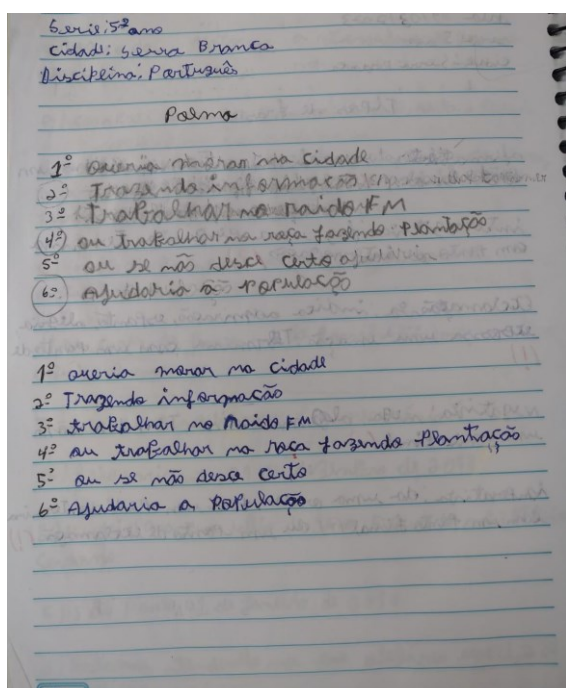 Serie: 5º ano
Cidade: Serra Branca
Disciplina: Português
Poema
1º queria morar na cidade
2º Trazendo informação
3º Trabalhar na Raido FM
4º ou trabalhar na roça fazendo Plantação
5º ou se não desce certo ajudo
6º Ajudaria a População
1º queria morar na cidade
2º Trazendo informação
3º trabalhar no Raido FM
4º ou trabalhar na roça fazendo Plantação
5º ou se não desce certo
6º Ajudaria a População